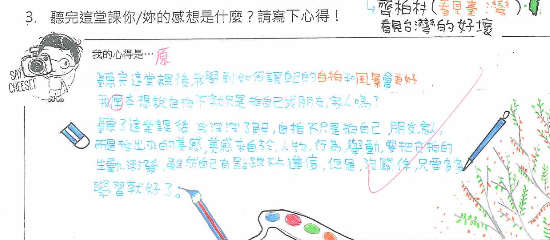 齊柏村(看見臺灣)
看見台灣的好壞
3. 聽完這堂課你/妳的感想是什麼？請寫下心得！
我的心得是…原
SAY CHEESE!
聽完這堂課後,我學到如何讓自己的自拍和風景會更好
我原本想說自拍不就只是拍自己或朋友,家人嗎?
聽了這堂課後 我深深了解,自拍不只是拍自己,朋友,家人,
而是拍出來的美感,美感來自於,人物,行為,舉動,要把自拍的
生動,活潑,雖然自己有點跟不上進度,但是,沒關係,只要多多
學習就好了。